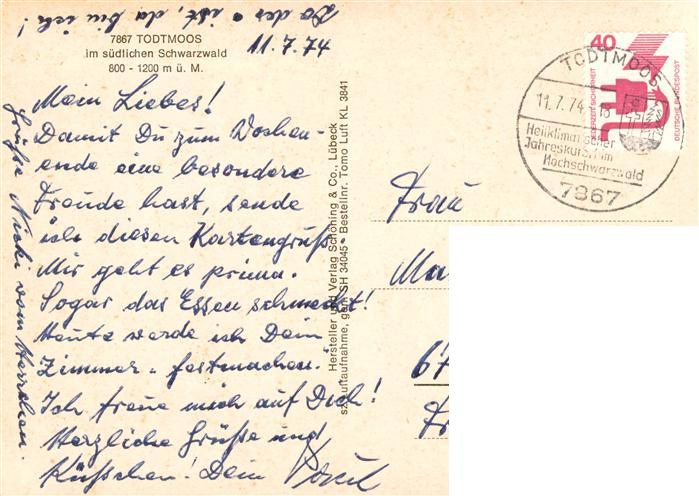 Do der o ist, da bin ich!
7867 TODTMOOS
im südlichen Schwarzwald
800 - 1200 m ü. M.
11.7.74
Mein Liebes!
Damit Du zum Wochen-
ende eine besondere
Freude hast, sende
ich diesen Kartengruß.
Mir geht es prima.
Sogar das Essen schmeckt!
Heute werde ich Dein
Zimmer festmachen.
Ich freue mich auf Dich!
Herzliche Grüße und
Küßchen! Dein
Grüße Nicki vom Herrchen.
Hersteller und Verlag Schöning & Co., Lübeck
Luftaufnahme, gen. SH 34045 • Bestellnr. Tomo Luft KL 3841
40
UNFALLVERHÜTUNG
DEUTSCHE BUNDESPOST
TODTMOOS
11.7.74
Heilklimatischer
Jahreskurort im
Hochschwarzwald
7867
Frau
Ma
67
Fr